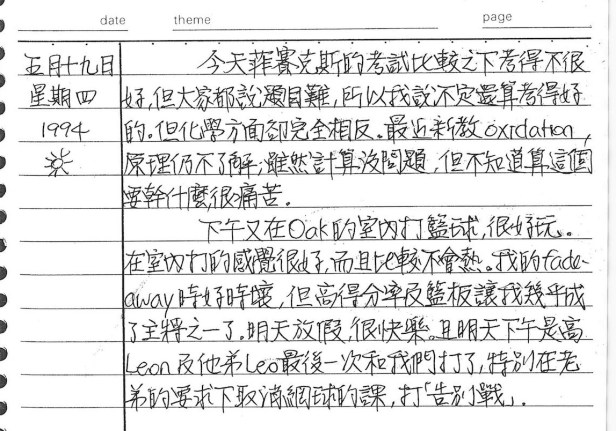 date theme page
五月十九日 今天菲賽克斯的考試比較之下考得不很
星期四 好,但大家都說題目難,所以我說不定還算考得好
1994 的.但化學方面卻完全相反.最近新教oxidation,
原理仍不了解;雖然計算沒問題,但不知道算這個
要幹什麼,很痛苦.
下午又在Oak的室內打籃球,很好玩.
在室內打的感覺很好,而且比較不會熱.我的fade-
away時好時壞,但高得分率及籃板讓我幾乎成
了主將之一了.明天放假,很快樂.且明天下午是高
Leon及他弟Leo最後一次和我們打了,特別在老
弟的要求下取消網球的課,打「告別戰」.